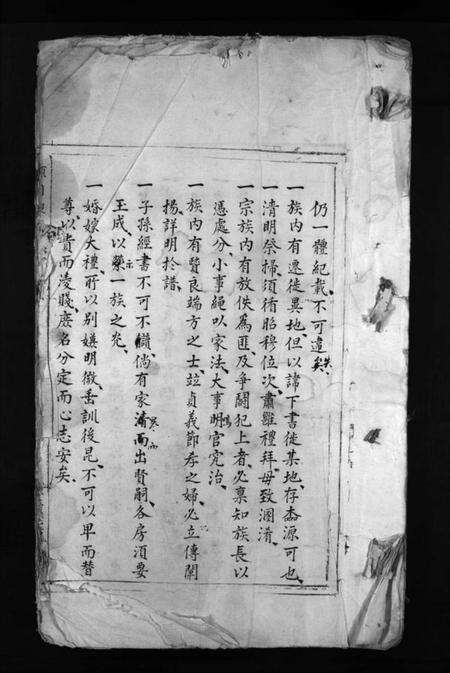 仍一體紀載、不可遺失矣、
一族内有遷徙異地、但以諱下書徙某地、存本源可也、
一清明祭掃、須循昭穆位次、肅雝禮拜、毋致溷淆、
一宗族内有放佚為匪及爭鬬犯上者、必稟知族長以
憑處分、小事繩以家法、大事鳴官究治、
一族内有賢良端方之士、並貞義節孝之婦、必立傳闡
揚、詳明於譜、
一子孫經書不可不讀、倘有家清寒而而出賢嗣、各房須要
玉成、以示榮一族之光、
一婚嫁大禮、所以别嫌明微、垂訓後昆、不可以卑而替
尊、以貴而淩賤、庶名分定而心志安矣、